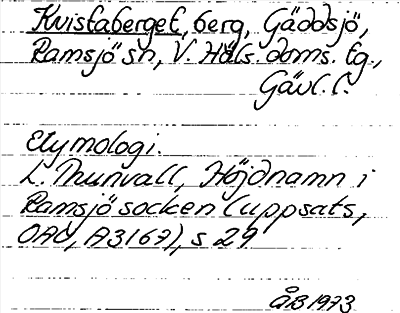 Kvistaberget, berg, Gäddsjö,
Ramsjö sn, V. Häls. doms. tg.,
Gävl. l.
Etymologi.
L. Thunvall, Höjdnamn i
Ramsjö socken (uppsats,
OAU, A3167), s 29
ÅB 1973